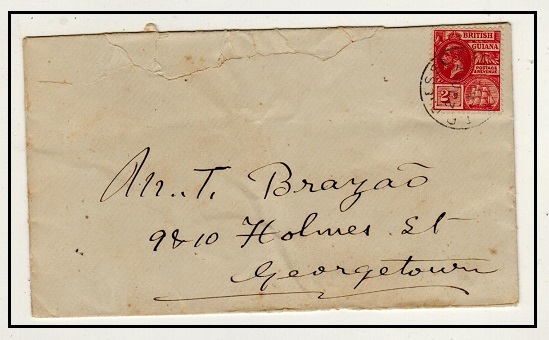 BRITISH
GUIANA
POSTAGE
& REVENUE
2
Mr. T. Brazaõ
9 & 10 Holmes St
Georgetown